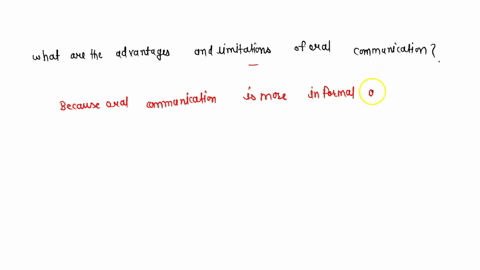 what are the advantages and limitations of oral communication?
Because oral communication is more informal o